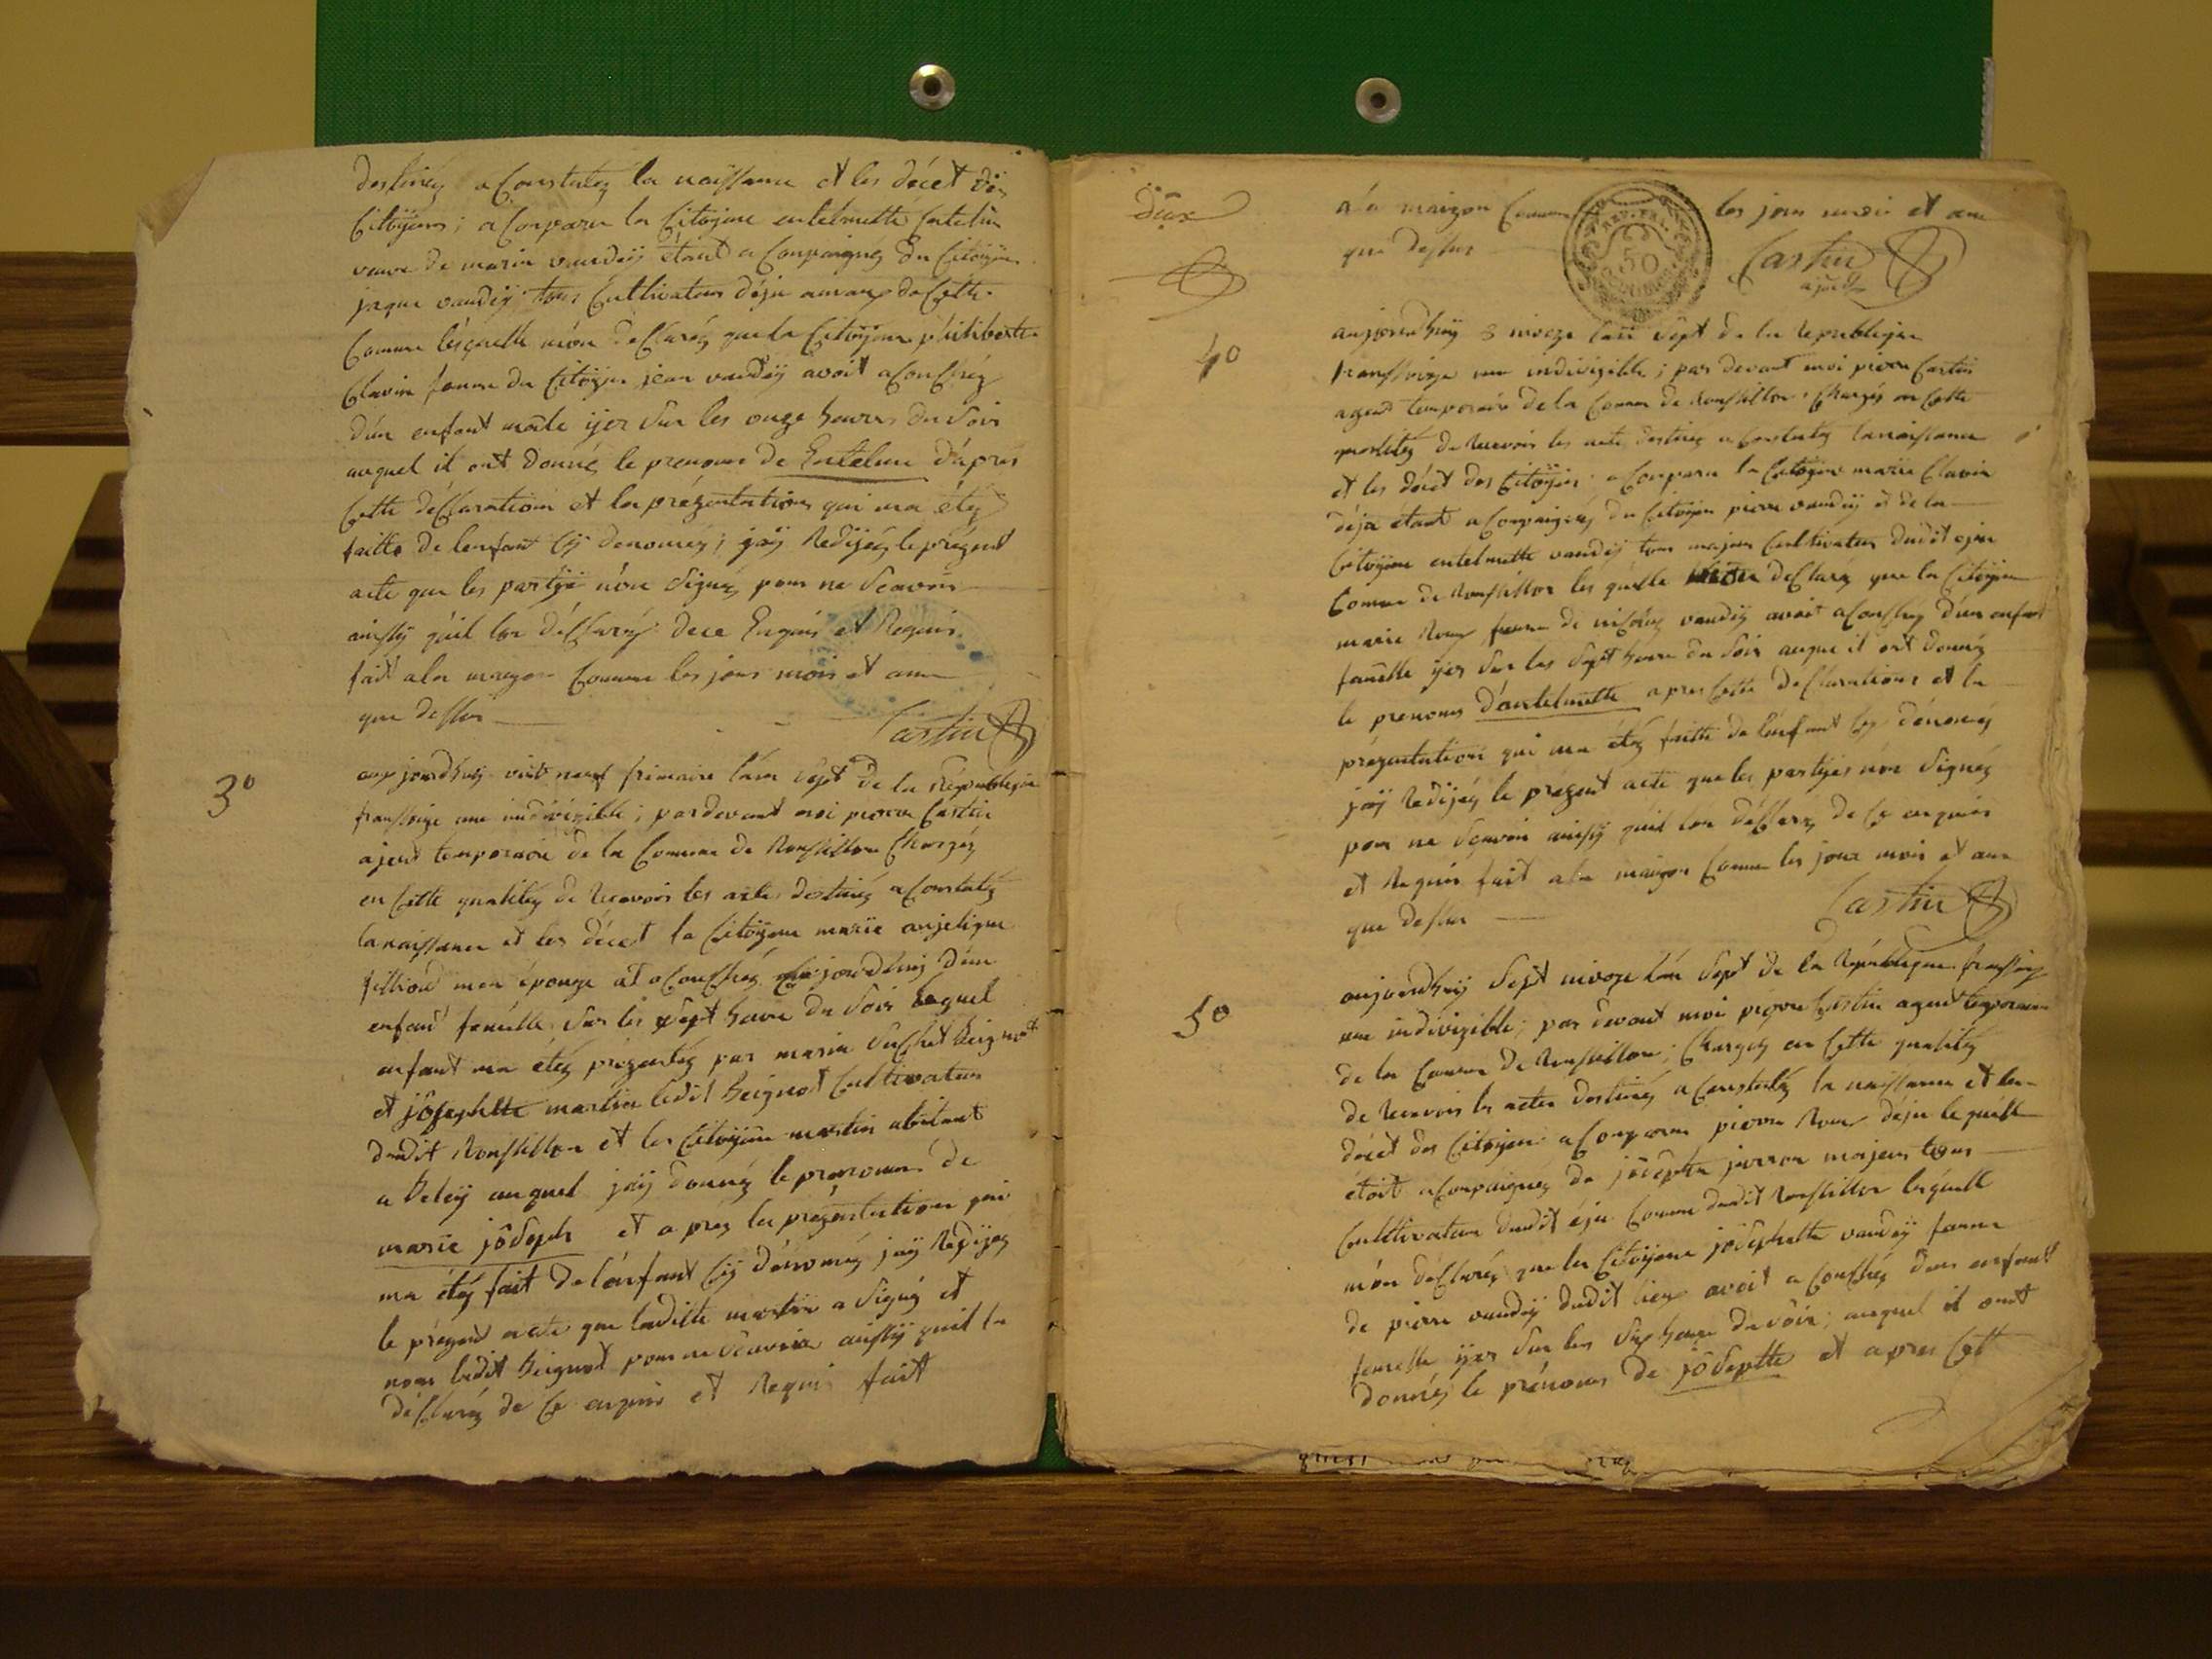 destinéz a Constatéz la naissance et les décet des
Citoÿens; a Conparu la Citoÿene entelmette
veuve de marin vandeÿ étant a Conpaignéz du Citoÿen
jaque vandeÿ tous Cultivateur déja de Cette
Comune lésquelle déClaréz que la Citoÿene philiberte
Clavin feme du Citoÿen jean vandeÿ avoit aCouChéz
d'un enfant male ÿer sur les onze heures du Soir
auquel il ont donnéz le prenome de Entelme d'apres
Cette déClaration et la prézentation qui ma étéz
faitte de lenfant Cÿ denoméz; jaÿ Redijéz le prézent
acte que les partÿe signéz pour ne Scavoir
ainssÿ quil lon déClaréz dece Enquis et Requis
fait a la maizon Comune les jour mois et ane
que dessus
Castin
3°
aujourdhuÿ vint neuf frimaire lan Sept de la Républeque
franssoize une indivizible; pardevant moi pierre Castin
ajent temporaire de la Comune de Roussillon Chargéz
en Cette qualitéz de Recevoir les actes destinéz a Constatéz
la naissance et les décet la Citoÿene marie anjelique
mon épouze at aCouChéz aujourdhuÿ d'un
enfant femélle sur les sept heure du Soir lequel
enfant ma étéz prézentéz par marin
et jôsephtte martin ledit Beignot Cultivateur
dudit Roussillon et la Citoÿene martin abitant
a Beleÿ auquel jaÿ donnéz le prenome de
marie jôseph et apréz la prézentation qui
ma étéz fait de lénfant Cÿ dénoméz jaÿ Redijéz
le prézent acte que laditte martin a Signéz et
non ledit Beignot pour ne Scavoir ainssÿ quil la
déClaréz de Ce enquis et Requis fait
Deux
a la maizon Comune les jour mois et ane
que dessus
Castin
ajent
REP. FRA.
50
CENTIMES
4°
aujourdhuÿ 3 nivoze lan sept de la Republique
franssoize une indivizible; par devant moi pierre Castin
agent temporaire de la Comune de Roussillon Chargéz en Cette
qualitéz de Recevoir les acte destinéz a Constatéz la naissance
et les décet des Citoÿen a Conparu la Citoÿene marie Clavin
déja étant a Conpaignéz du Citoÿen pierre vandeÿ et de la
Citoÿene entelmette vandeÿ tous majeur Cultivateur dudit
Comune de Roussillon les quélle déClaréz que la Citoÿene
marie Roux feme de vandeÿ avoit aCouChéz d'un enfant
femélle ÿer sur les Sept heure du Soir auque il ont donnéz
le prenome d'antelmette apres Cette deClaration et la
prézentation qui ma étéz faitte de lénfant Cÿ dénoméz
jaÿ Redijéz le prézent acte que les partÿes non Signéz
pour ne Scavoir ainssÿ quil lon déClaréz de Ce enquis
et Requis fait a la maizon Comune les jour mois et ane
que dessus
Castin
5°
aujourdhuÿ Sept nivoze lan Sept de la République franssoize
une indivizible; par devant moi pierre Castin agent temporaire
de la Comune de Roussillon; Chargéz en Cette qualitéz
de Recevoir les actes destinéz a Constatéz la naissance et les
décet des Citoÿens a Conparu pierre Roux déja lequélle
étoit aConpaignéz de josephte majeur tous
Cultivateur dudit Comune dudit Roussillon lesquelle
m'on déClaréz que la Citoÿene jôsephette vandeÿ feme
de pierre vandeÿ dudit lieu avoit a CouChéz d'un enfant
femélle ÿer sur les Six heure du Soir; auquel il ont
donnéz le prénome de jôsephtte et apres Cett